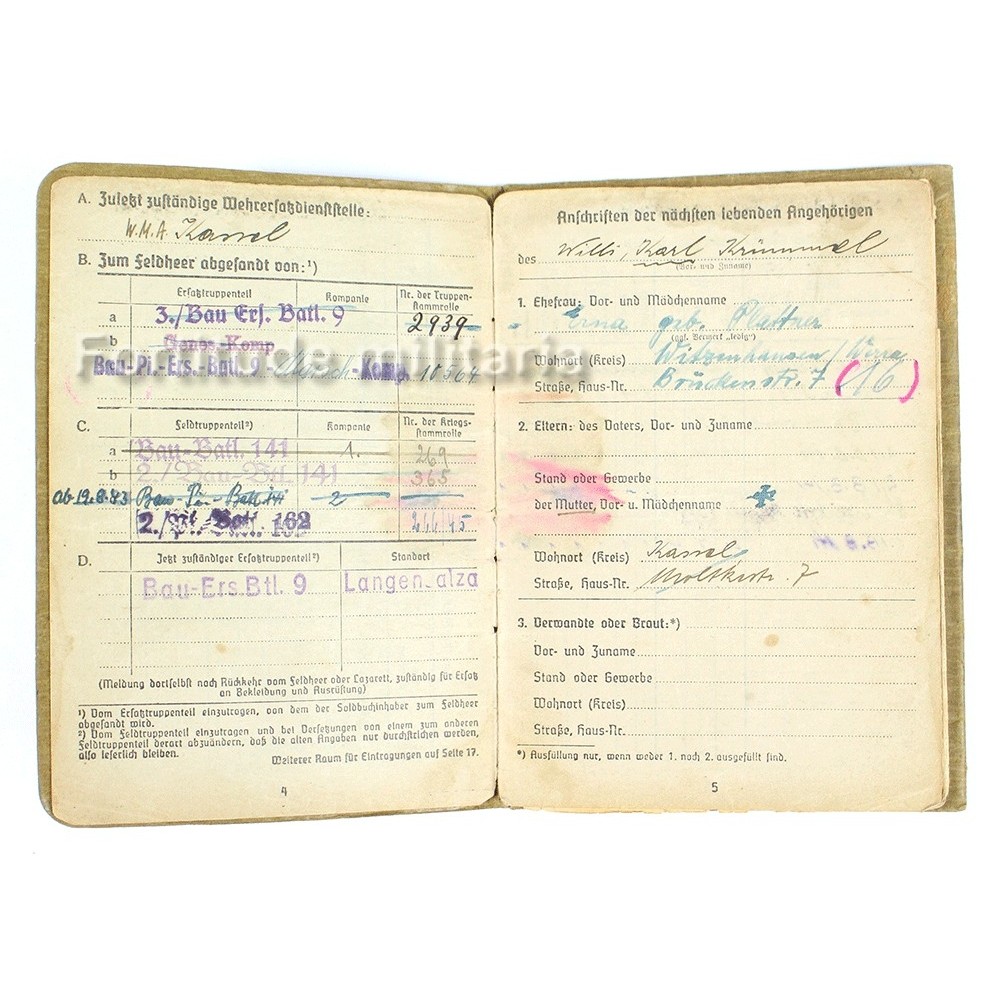 A. Zuletzt zuständige Wehrersatzdienststelle:
W.M.A. Kassel
B. Zum Feldheer abgesandt von:¹)
Ersatztruppenteil Kompanie Nr. der Truppen-
stammrolle
a 3./Bau Ers. Batl. 9 2939
b Genes.-Komp
Bau-Pi.-Ers.-Batl. 9 Marsch-Komp 10564
C. Feldtruppenteil²) Kompanie Nr. der Kriegs-
stammrolle
a Bau-Batl. 141 1. 269
b 2./Bau Btl. 141 365
ab 19.8.43 Bau-Pi-Batl 141 2
2./Pi. Batl. 162
D. Jetzt zuständiger Ersatztruppenteil²) Standort
Bau-Ers.Btl. 9 Langensalza
(Meldung dortselbst nach Rückkehr vom Feldheer oder Lazarett, zuständig für Ersatz
an Bekleidung und Ausrüstung)
¹) Vom Ersatztruppenteil einzutragen, von dem der Soldbuchinhaber zum Feldheer
abgesandt wird.
²) Vom Feldtruppenteil einzutragen und bei Versetzungen von einem zum anderen
Feldtruppenteil derart abzuändern, daß die alten Angaben nur durchstrichen werden,
also leserlich bleiben.
Weiterer Raum für Eintragungen auf Seite 17.
4
Anschriften der nächsten lebenden Angehörigen
des Willi, Karl Krümmel
(Vor- und Zuname)
1. Ehefrau: Vor- und Mädchenname
Erna geb. Plattner
(ggf. Vermerk „ledig")
Wohnort (Kreis) Witzenhausen/Werra
Straße, Haus-Nr. Brückenstr. 7 (16)
2. Eltern: des Vaters, Vor- und Zuname
Stand oder Gewerbe
der Mutter, Vor- u. Mädchenname
Wohnort (Kreis) Kassel
Straße, Haus-Nr. Moltkestr. 7
3. Verwandte oder Braut:*)
Vor- und Zuname
Stand oder Gewerbe
Wohnort (Kreis)
Straße, Haus-Nr.
*) Ausfüllung nur, wenn weder 1. noch 2. ausgefüllt sind.
5